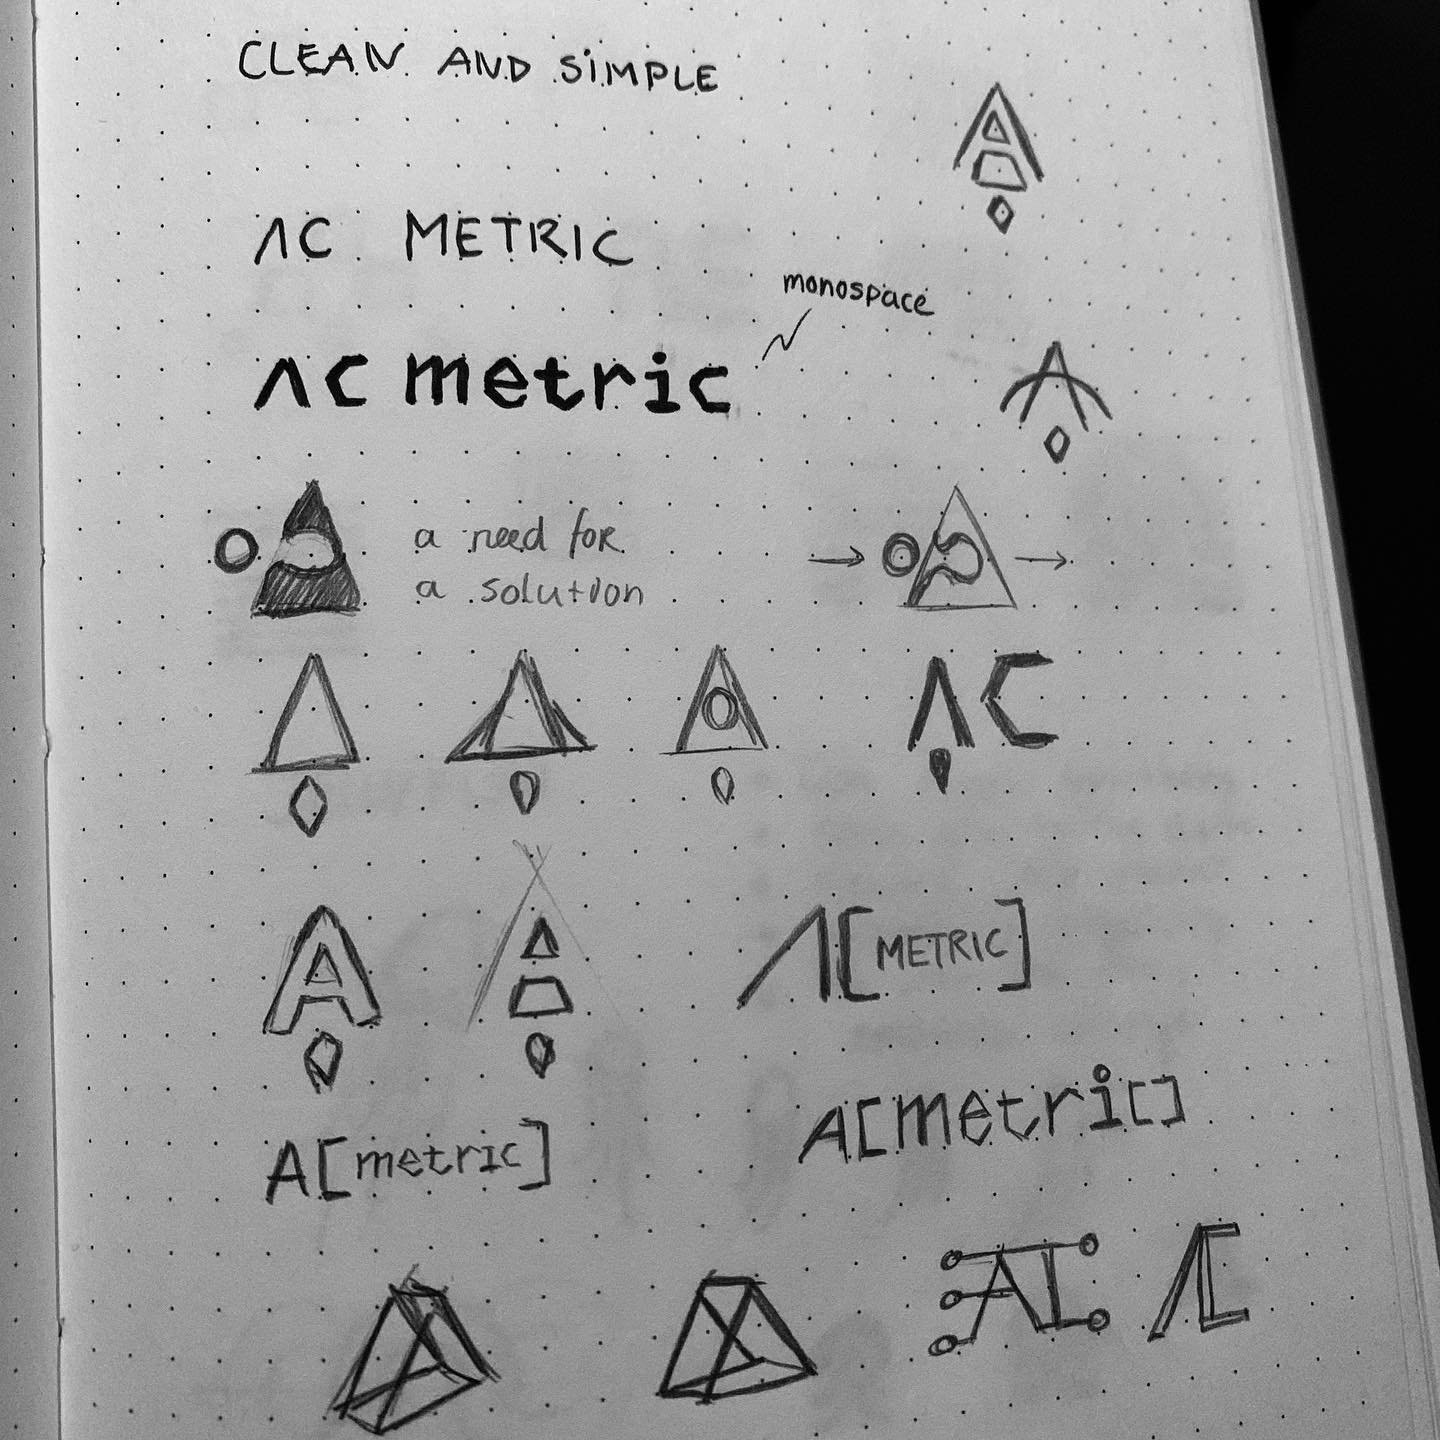 CLEAN AND SiMPLE
ΛC METRIC
monospace
ΛC metric
a need for
a solution
ΛC
Λ[METRIC]
A[metric]
A[metric]
AI
ΛC